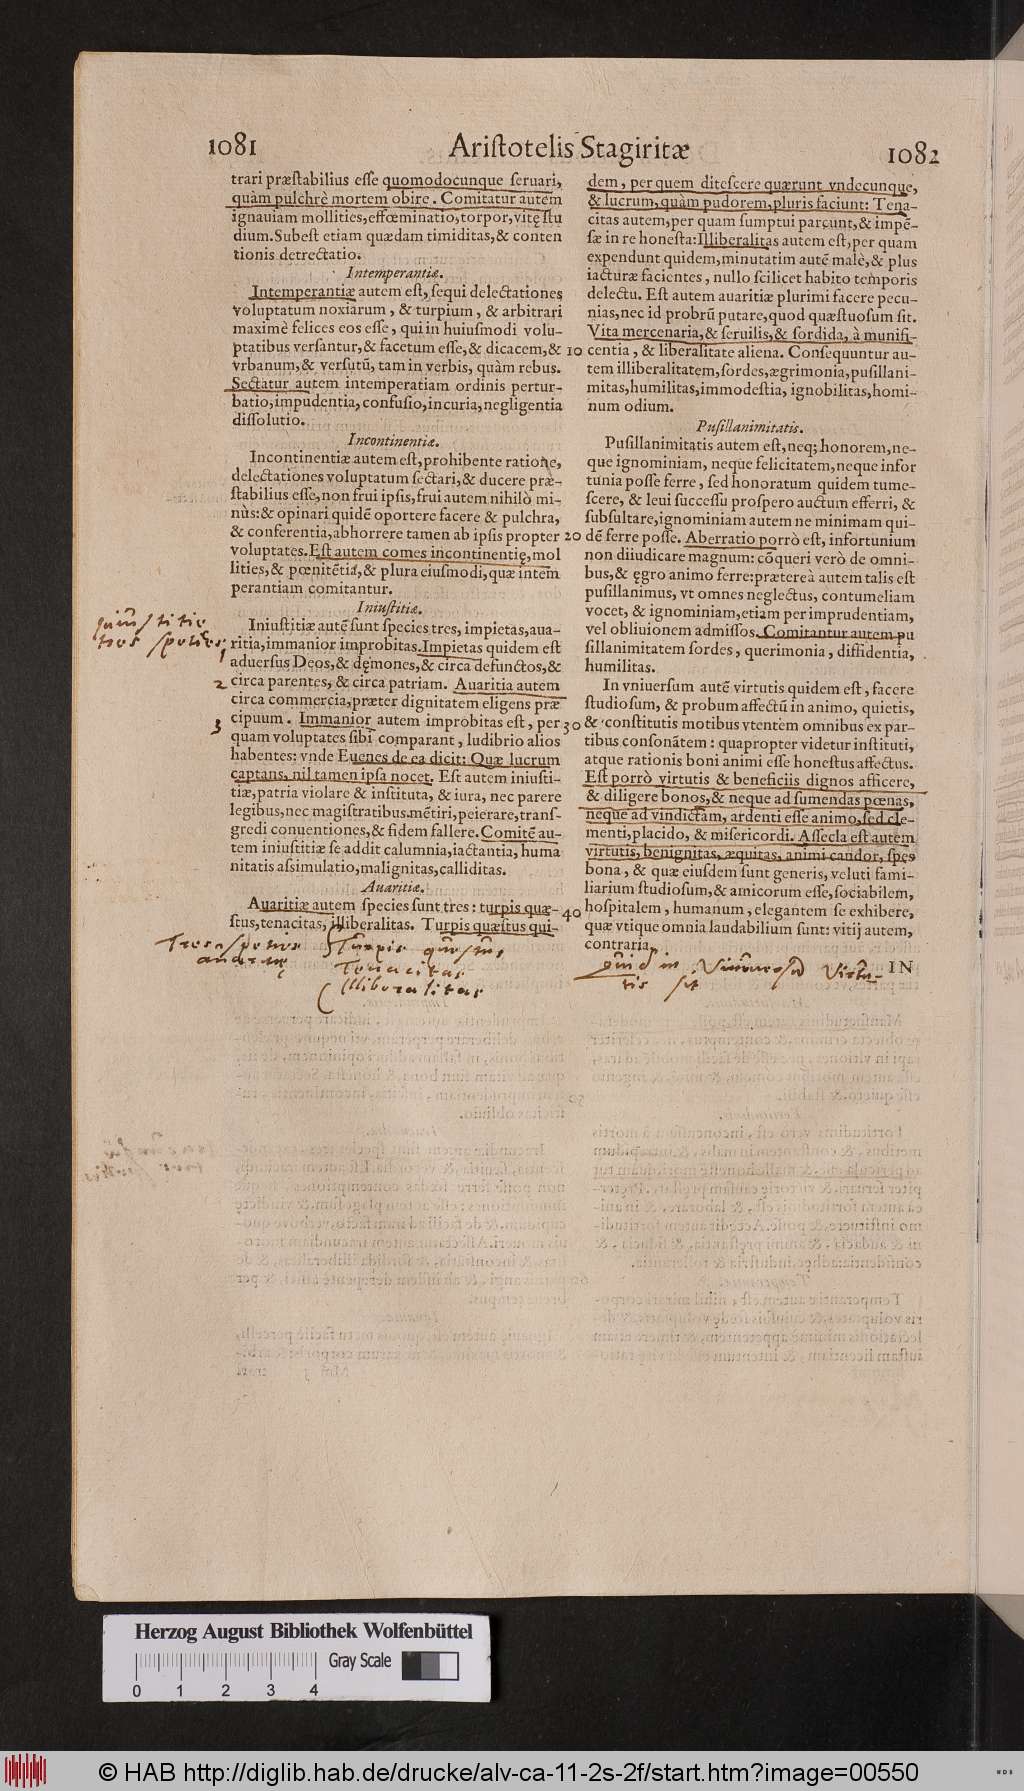 1081
Ariſtotelis Stagiritæ
1082
trari præſtabilius eſſe quomodocunque ſeruari,
quàm pulchrè mortem obire. Comitatur autem
ignauiam mollities, effœminatio, torpor, vitę ſtu
dium. Subeſt etiam quædam timiditas, & conten
tionis detrectatio.
Intemperantiæ.
Intemperantiæ autem eſt, ſequi delectationes
voluptatum noxiarum, & turpium, & arbitrari
maximè felices eos eſſe, qui in huiuſmodi volu-
ptatibus verſantur, & facetum eſſe, & dicacem, &
vrbanum, & verſutũ, tam in verbis, quàm rebus.
Sectatur autem intemperatiam ordinis pertur-
batio, impudentia, confuſio, incuria, negligentia
diſſolutio.
Incontinentiæ.
Incontinentiæ autem eſt, prohibente ratione,
delectationes voluptatum ſectari, & ducere præ-
ſtabilius eſſe, non frui ipſis, frui autem nihilò mi-
nùs: & opinari quidẽ oportere facere & pulchra,
& conferentia, abhorrere tamen ab ipſis propter
voluptates. Eſt autem comes incontinentię, mol
lities, & pœnitẽtia, & plura eiuſmodi, quæ intem
perantiam comitantur.
Iniuſtitiæ.
Iniuſtitiæ autẽ ſunt ſpecies tres, impietas, aua-
ritia, immanior improbitas. Impietas quidem eſt
aduerſus Deos, & dęmones, & circa defunctos, &
circa parentes, & circa patriam. Auaritia autem
circa commercia, præter dignitatem eligens præ
cipuum. Immanior autem improbitas eſt, per
quam voluptates ſibi comparant, ludibrio alios
habentes: vnde Euenes de ea dicit: Quæ lucrum
captans, nil tamen ipſa nocet. Eſt autem iniuſti-
tiæ, patria violare & inſtituta, & iura, nec parere
legibus, nec magiſtratibus. mẽtiri, peierare, tranſ-
gredi conuentiones, & fidem fallere. Comitẽ au-
tem iniuſtitiæ ſe addit calumnia, iactantia, huma
nitatis aſsimulatio, malignitas, calliditas.
Auaritiæ.
Auaritiæ autem ſpecies ſunt tres: turpis quæ-
ſtus, tenacitas, illiberalitas. Turpis quæſtus qui-
10
20
30
40
dem, per quem diteſcere quærunt vndecunque,
& lucrum, quàm pudorem, pluris faciunt: Tena-
citas autem, per quam ſumptui parcunt, & impẽ-
ſæ in re honeſta: Illiberalitas autem eſt, per quam
expendunt quidem, minutatim autẽ malè, & plus
iacturæ facientes, nullo ſcilicet habito temporis
delectu. Eſt autem auaritiæ plurimi facere pecu-
nias, nec id probrũ putare, quod quæſtuoſum ſit.
Vita mercenaria, & ſeruilis, & ſordida, à munifi-
centia, & liberalitate aliena. Conſequuntur au-
tem illiberalitatem, ſordes, ægrimonia, puſillani-
mitas, humilitas, immodeſtia, ignobilitas, homi-
num odium.
Puſillanimitatis.
Puſillanimitatis autem eſt, neq; honorem, ne-
que ignominiam, neque felicitatem, neque infor
tunia poſſe ferre, ſed honoratum quidem tume-
ſcere, & leui ſucceſſu proſpero auctum efferri, &
ſubſultare, ignominiam autem ne minimam qui-
dẽ ferre poſſe. Aberratio porrò eſt, infortunium
non diiudicare magnum: cõqueri verò de omni-
bus, & ęgro animo ferre: præterea autem talis eſt
puſillanimus, vt omnes neglectus, contumeliam
vocet, & ignominiam, etiam per imprudentiam,
vel obliuionem admiſſos. Comitantur autem pu
ſillanimitatem ſordes, querimonia, diffidentia,
humilitas.
In vniuerſum autẽ virtutis quidem eſt, facere
ſtudioſum, & probum affectũ in animo, quietis,
& conſtitutis motibus vtentem omnibus ex par-
tibus conſonãtem: quapropter videtur inſtituti,
atque rationis boni animi eſſe honeſtus affectus.
Eſt porrò virtutis & beneficiis dignos afficere,
& diligere bonos, & neque ad ſumendas pœnas,
neque ad vindictam, ardenti eſſe animo, ſed cle-
menti, placido, & miſericordi. Aſſecla eſt autem
virtutis, benignitas, æquitas, animi candor, ſpes
bona, & quæ eiuſdem ſunt generis, veluti fami-
liarium ſtudioſum, & amicorum eſſe, ſociabilem,
hoſpitalem, humanum, elegantem ſe exhibere,
quæ vtique omnia laudabilium ſunt: vitij autem,
contraria.
IN
iniuſtitię
tres ſpecies
1
2
3
Tres ſpecies
auaritię
Turpis quęſtus
Tenacitas
Illiberalitas
quid in Vniuerſũ Virtu-
tis ſit
Herzog August Bibliothek Wolfenbüttel
Gray Scale
0 1 2 3 4
© HAB http://diglib.hab.de/drucke/alv-ca-11-2s-2f/start.htm?image=00550